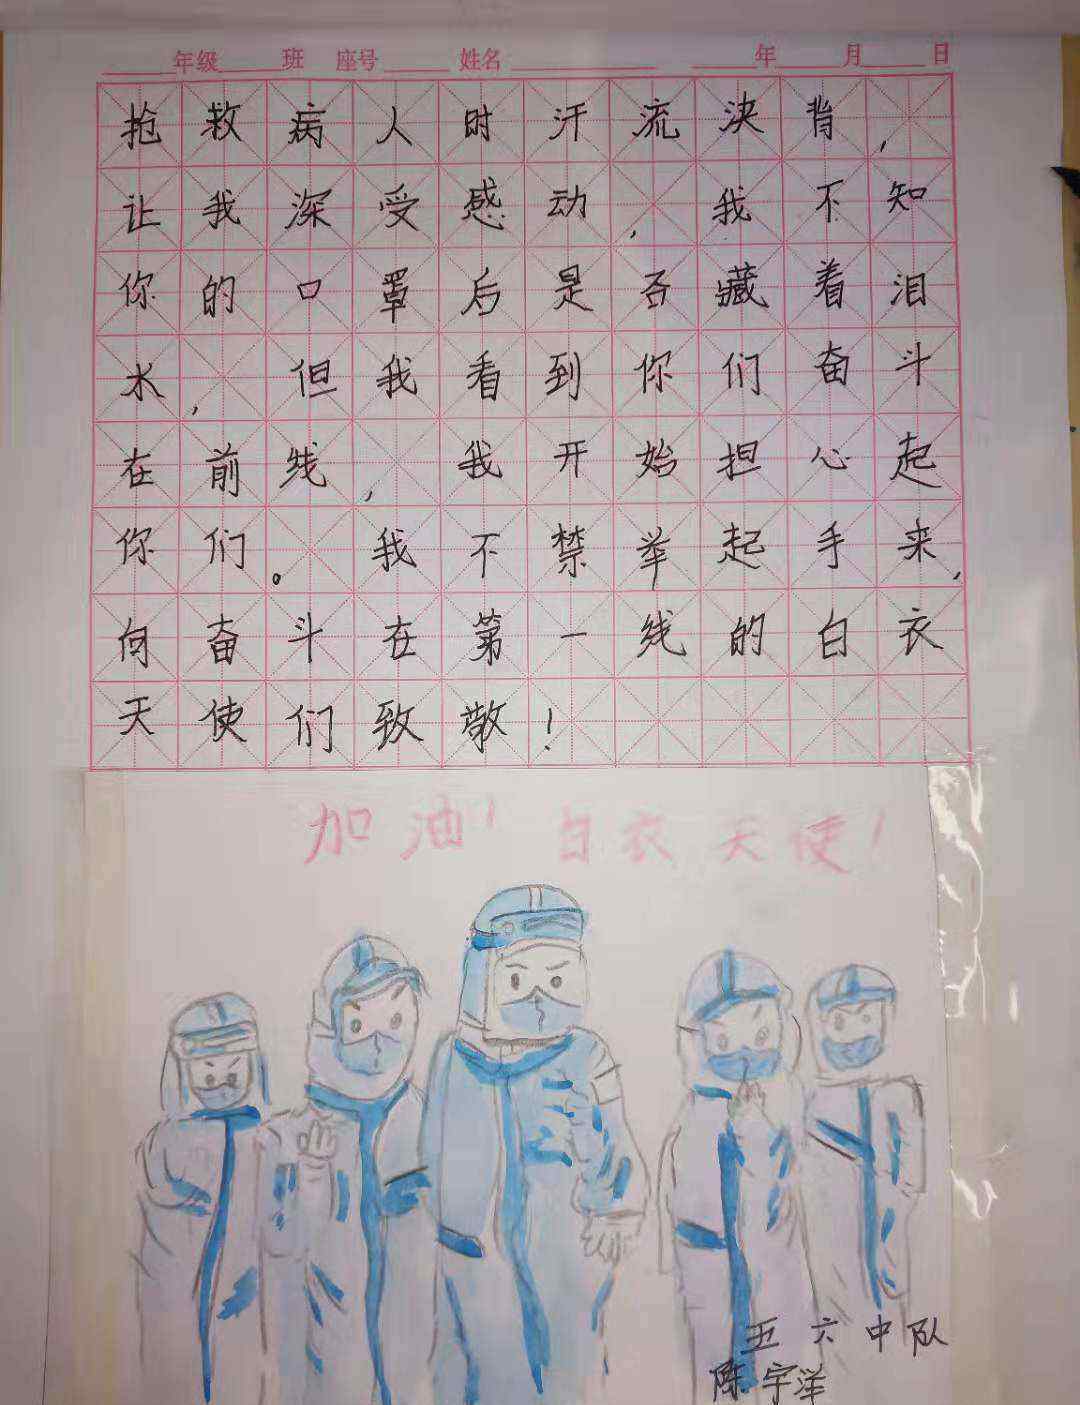 年级 班 座号 姓名 年 月 日
抢救病人时汗流决背，
让我深受感动，我不知
你的口罩后是否藏着泪
水，但我看到你们奋斗
在前线，我开始担心起
你们。我不禁举起手来，
向奋斗在第一线的白衣
天使们致敬！
加油！白衣天使！
五六中队
陈宇洋